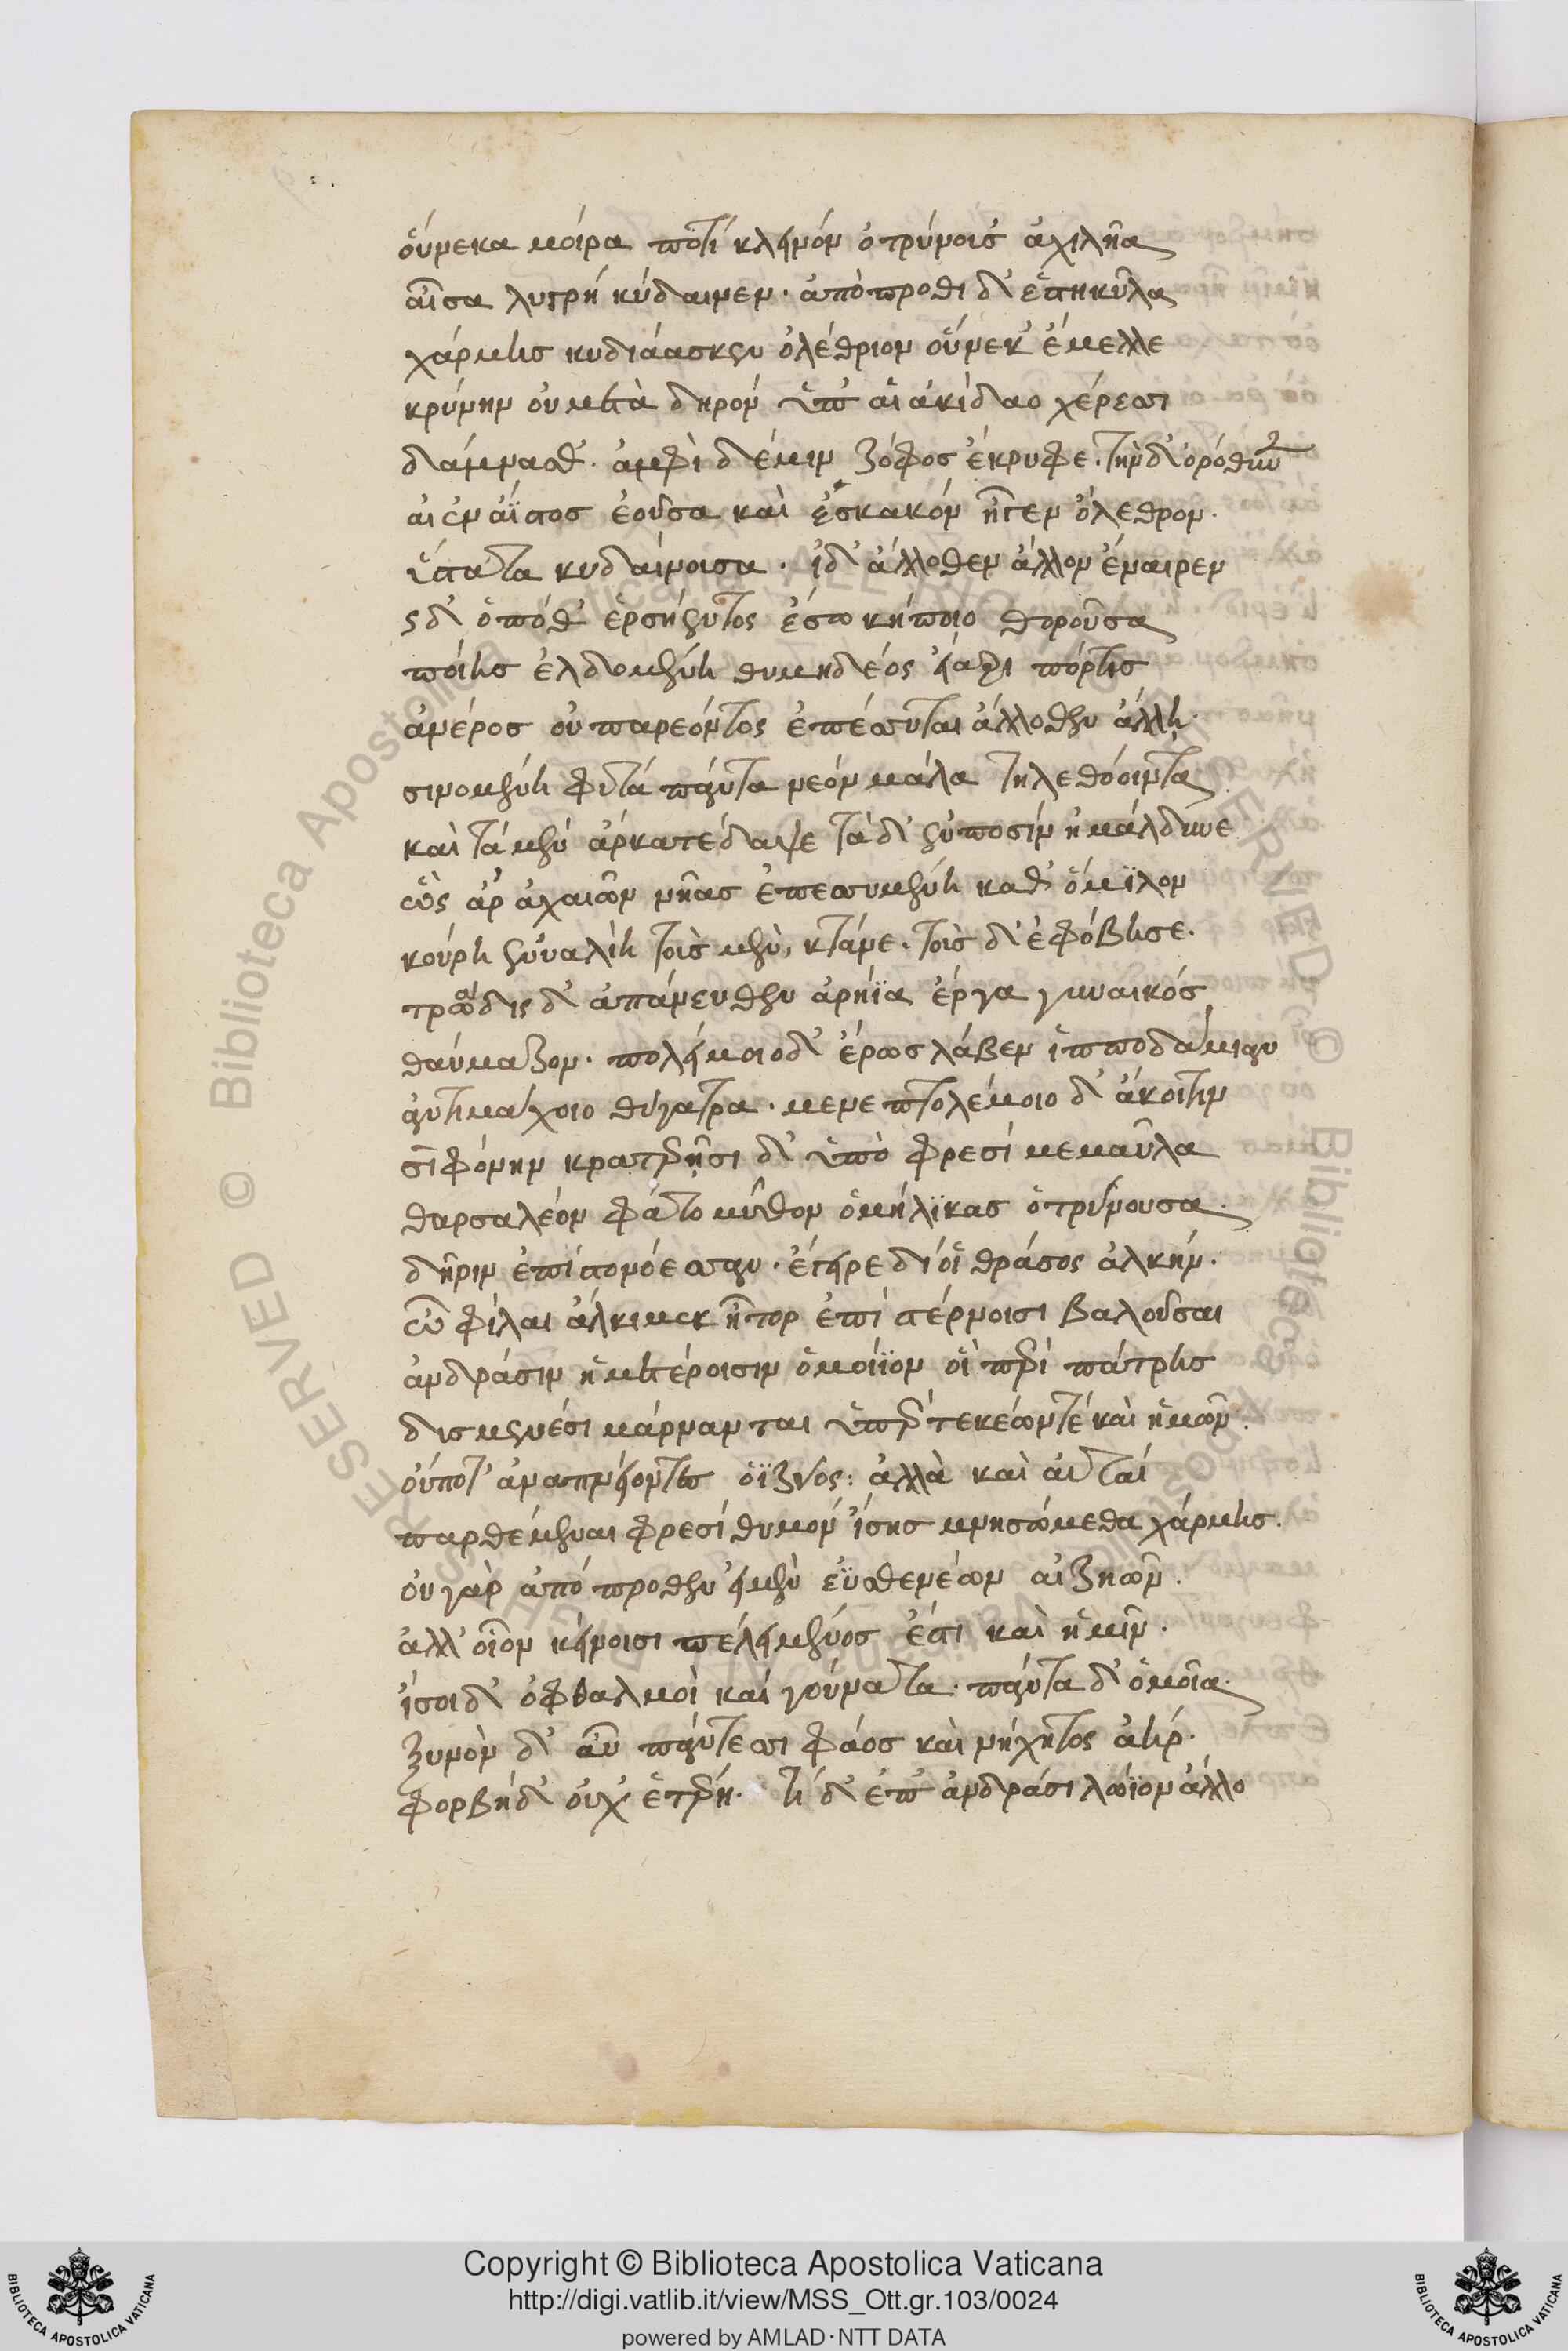 οὕνεκα μοίρα ποτὶ κλεινὸν ὀτρύνοισ ἀχιλῆα
αἶσα λυγρὴ κύδαινεν· ἀπόπροθι δ' ἑστηκυῖα
χάρμης κυδιάασκεν ὀλέθριον οὕνεκ' ἔμελλε
κρύνην οὐ μετὰ δηρὸν ὑπ' αἰακίδαο χέρεσσι
δάμνασθ'. ἀμφὶ δέ μιν ζόφος ἔκρυφε. τὴν δ' ὀρόθυν
αἰὲν ἄϊστος ἐοῦσα καὶ ἐς κακὸν ἦγεν ὄλεθρον.
ὕστατα κυδαίνοισα. ἰδ' ἄλλοθεν ἄλλον ἔναιρεν
ὡς δ' ὁπόθ' ἑρσήεντος ἔσω κήποιο θοροῦσα
ποίης ἐλδομένη θυμηδέος εἴαρι πόρτις
ἀνέρος οὐ παρεόντος ἐπέσυται ἄλλοθεν ἄλλη.
σινομένη φυτά πάντα νεόν μάλα τηλεθόοιντα
καὶ τὰ μὲν ἀρκατέδαψε τὰ δ' ἐν ποσὶν ἠμάλδυνε
ὣς ἄρ' ἀχαιῶν νῆας ἐπεσσυμένη καθ' ὅμϊλον
κούρη ἐνυαλίη τοὶς μὲν κτάνε. τοὶς δ' ἐφόβησε.
τρῳάδες δ' ἀπάνευθεν ἀρήϊα ἔργα γυναικός
θαύμαζον. πολέμοιο δ' ἔρως λάβεν ἱπποδάμειαν
ἀντιμάχοιο θύγατρα. μενεπτολέμοιο δ' ἄκοιτιν
σιφόνην κρατερῇσι δ' ὑπὸ φρεσὶ μεμαυῖα
θαρσαλέον φάτο μῦθον ὁμήλϊκας ὀτρύνουσα.
δῆριν ἐπὶ στονόεσσαν. ἔγειρε δέ οἱ θράσος ἀλκήν.
ὦ φίλαι ἄλκιμον ἦτορ ἐπὶ στέρνοισι βαλοῦσαι
ἀνδράσιν ἡμετέροισιν ὁμοίϊον οἳ περὶ πάτρης
δυσμενέσι μάρνανται ὑπὲρ τεκέων τε καὶ ἡμῶν.
οὔποτ' ἀναπνείοντες ὀϊζύος: ἀλλὰ καὶ αὐταί
παρθέμεναι φρεσὶ θυμὸν ἴσης μνησώμεθα χάρμης.
οὐ γὰρ ἀπόπροθεν εἰμὲν ἐϋσθενέων αἰζηῶν.
ἀλλ' οἷον κείνοισι πέλει μένος ἔστι καὶ ἡμῖν.
ἶσοι δ' ὀφθαλμοὶ καὶ γούνατα. πάντα δ' ὁμοῖα.
ξυνὸν δ' αὖ πάντεσσι φάος καὶ νήχυτος ἀήρ.
φορβὴ δ' οὐχ ἑτέρη. τί δ' ἐπ' ἀνδράσι λώϊον ἄλλο
Copyright © Biblioteca Apostolica Vaticana
http://digi.vatlib.it/view/MSS_Ott.gr.103/0024
powered by AMLAD·NTT DATA